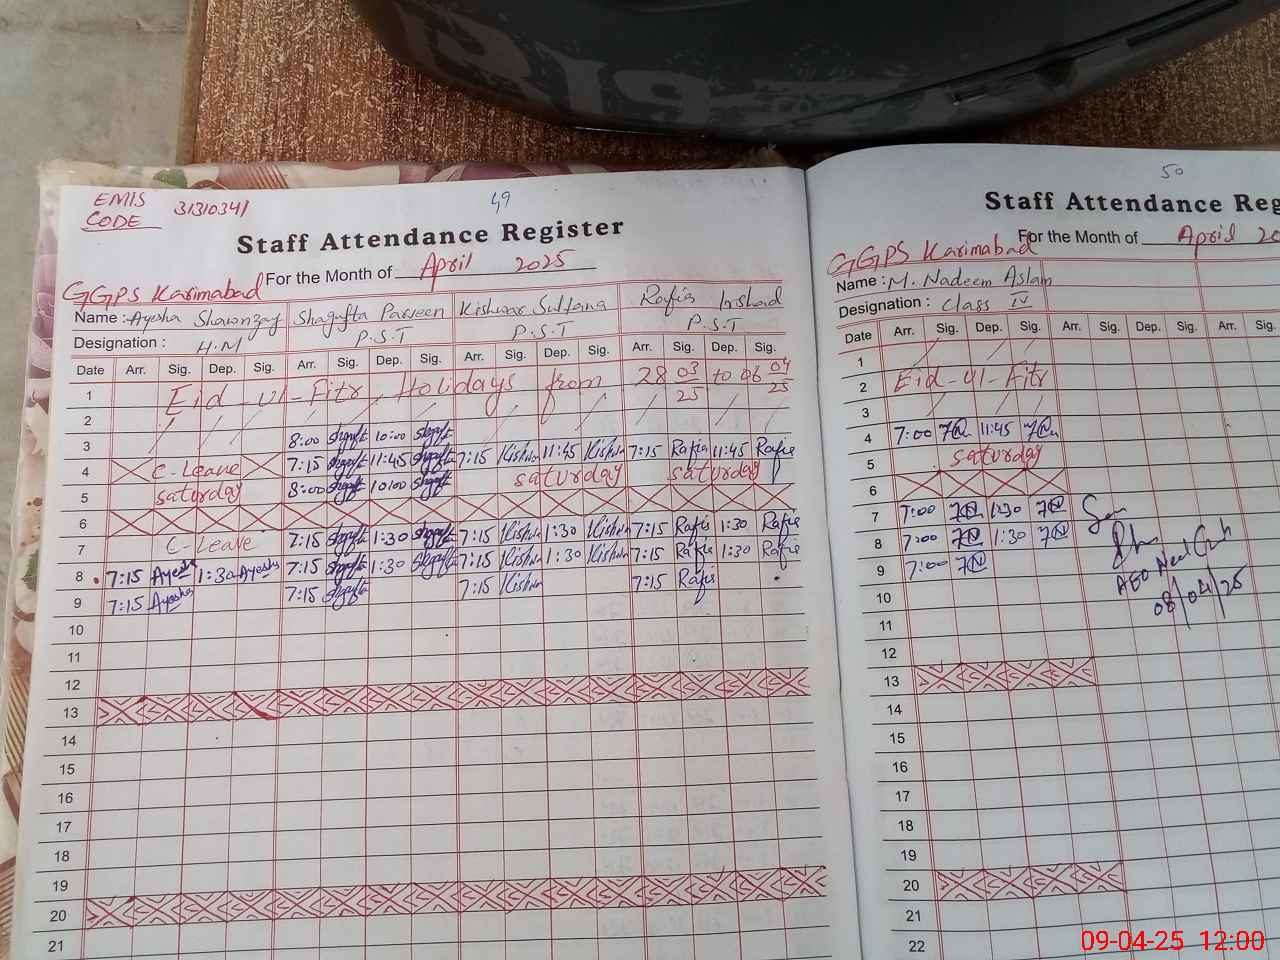 49
EMIS
CODE 31310341
Staff Attendance Register
For the Month of April 2025
GGPS Karimabad
Name : Ayesha Shawnzay Shagufta Parveen Kishwar Sultana Rafia Irshad
Designation : H.M P.S.T P.S.T P.S.T
Date Arr. Sig. Dep. Sig. Arr. Sig. Dep. Sig. Arr. Sig. Dep. Sig. Arr. Sig. Dep. Sig.
1 Eid-ul-Fitr Holidays from 28 03/25 to 06 04/25
2
3 8:00 Shgft 10:00 Shgft
4 C-Leave 7:15 Shgft 11:45 Shgft 7:15 Kishwr 11:45 Kishwr 7:15 Rafia 11:45 Rafia
5 Saturday 8:00 Shgft 10:00 Shgft Saturday Saturday
6
7 C-Leave 7:15 Shgft 1:30 Shgft 7:15 Kishwr 1:30 Kishwr 7:15 Rafia 1:30 Rafia
8 7:15 Ayesha 1:30 Ayesha 7:15 Shgft 1:30 Shgft 7:15 Kishwr 1:30 Kishwr 7:15 Rafia 1:30 Rafia
9 7:15 Ayesha 7:15 Shgft 7:15 Kishwr 7:15 Rafia
10
11
12
13
14
15
16
17
18
19
20
21
50
Staff Attendance Reg
For the Month of April 20
GGPS Karimabad
Name : M. Nadeem Aslam
Designation : Class IV
Date Arr. Sig. Dep. Sig. Arr. Sig. Dep. Sig. Arr. Sig.
1
2 Eid-ul-Fitr
3
4 7:00 11:45
5 Saturday
6
7 7:00 1:30
8 7:00 1:30
9 7:00
AEO
08/04/25
10
11
12
13
14
15
16
17
18
19
20
21
22
09-04-25 12:00